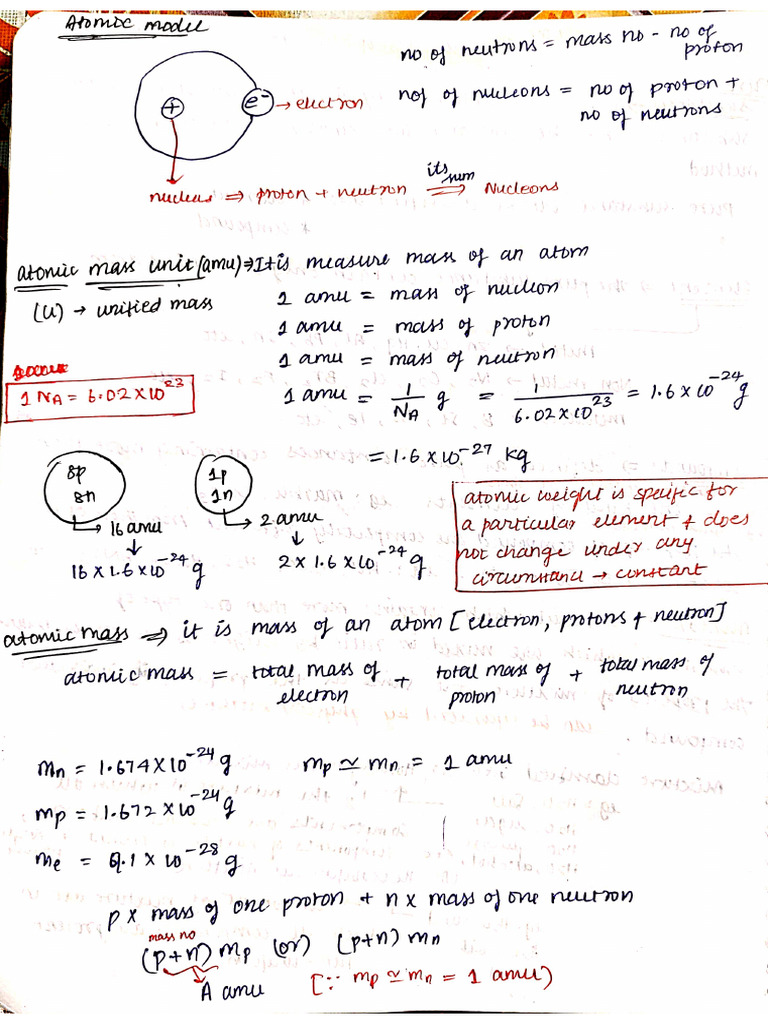 Atomic model
no of neutrons = mass no - no of proton
+
e⁻ → electron
nof of nucleons = no of proton + no of neutrons
nucleus ⇒ proton + neutron ⇒ its sum Nucleons
atomic mass unit (amu) ⇒ It is measure mass of an atom
(U) → unified mass
1 amu = mass of nucleon
1 amu = mass of proton
1 amu = mass of neutron
1 N_A = 6.02 × 10²³
1 amu = 1/N_A g = 1/6.02×10²³ = 1.6 × 10⁻²⁴ g
= 1.6 × 10⁻²⁷ kg
8p
8n
→ 16 amu
↓
16 × 1.6 × 10⁻²⁴ g
1p
1n
→ 2 amu
↓
2 × 1.6 × 10⁻²⁴ g
atomic weight is specific for
a particular element & does
not change under any
circumstance → constant
atomic mass ⇒ it is mass of an atom [electron, protons & neutron]
atomic mass = total mass of electron + total mass of proton + total mass of neutron
mn = 1.674 × 10⁻²⁴ g
mp ≃ mn = 1 amu
mp = 1.672 × 10⁻²⁴ g
me = 9.1 × 10⁻²⁸ g
p × mass of one proton + n × mass of one neutron
mass no
(p+n) mp (or) (p+n) mn
A amu
[∵ mp ≃ mn = 1 amu)